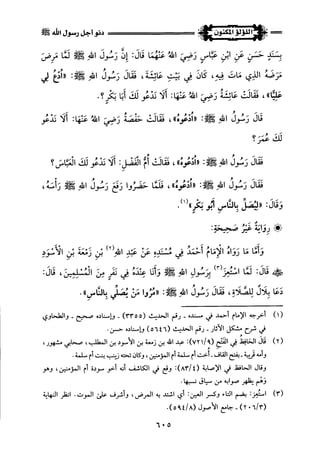 اللؤلؤ المكنون
دنو أجل رسول الله ﷺ
بِسَنَدٍ حَسَنٍ عَنِ ابْنِ عَبَّاسٍ رَضِيَ اللهُ عَنْهُمَا قَالَ: إِنَّ رَسُولَ اللهِ ﷺ لَمَّا مَرِضَ
مَرَضَهُ الَّذِي مَاتَ فِيهِ، كَانَ فِي بَيْتِ عَائِشَةَ، فَقَالَ رَسُولُ اللهِ ﷺ: «ادْعُ لِي
عَلِيًّا»، فَقَالَتْ عَائِشَةُ رَضِيَ اللهُ عَنْهَا: أَلَا نَدْعُو لَكَ أَبَا بَكْرٍ؟.
قَالَ رَسُولُ اللهِ ﷺ: «ادْعُوهُ»، فَقَالَتْ حَفْصَةُ رَضِيَ اللهُ عَنْهَا: أَلَا نَدْعُو
لَكَ عُمَرَ؟
فَقَالَ رَسُولُ اللهِ ﷺ: «ادْعُوهُ»، فَقَالَتْ أُمُّ الْفَضْلِ: أَلَا نَدْعُو لَكَ الْعَبَّاسَ؟
فَقَالَ رَسُولُ اللهِ ﷺ: «ادْعُوهُ»، فَلَمَّا حَضَرُوا رَفَعَ رَسُولُ اللهِ ﷺ رَأْسَهُ،
وَقَالَ: «لِيُصَلِّ بِالنَّاسِ أَبُو بَكْرٍ»(١).
* رِوَايَةٌ غَيْرُ صَحِيحَةٍ:
وَأَمَّا مَا رَوَاهُ الْإِمَامُ أَحْمَدُ فِي مُسْنَدِهِ عَنْ عَبْدِ اللهِ(٢) بْنِ زَمْعَةَ بْنِ الْأَسْوَدِ
ﷺ قَالَ: لَمَّا اسْتُعِزَّ(٣) بِرَسُولِ اللهِ ﷺ وَأَنَا عِنْدَهُ فِي نَفَرٍ مِنَ الْمُسْلِمِينَ، قَالَ:
دَعَا بِلَالٌ لِلصَّلَاةِ، فَقَالَ رَسُولُ اللهِ ﷺ: «مُرُوا مَنْ يُصَلِّي بِالنَّاسِ».
(١) أخرجه الإمام أحمد في مسنده - رقم الحديث (٣٣٥٥) - وإسناده صحيح - والطحاوي
في شرح مشكل الآثار - رقم الحديث (٥٦٤٦) وإسناده حسن.
(٢) قال الحافظ في الفتح (٧٢١/٩): عبد الله بن زمعة بن الأسود بن المطلب، صحابي مشهور،
وأمه قريبة - بفتح القاف - أخت أم سلمة أم المؤمنين، وكان تحته زينب بنت أم سلمة.
وقال الحافظ في الإصابة (٨٣/٤): وقع في الكاشف أنه أخو سودة أم المؤمنين، وهو
وَهم يظهر صوابه من سياق نسبها.
(٣) استُعِز: بضم التاء وكسر العين: أي اشتد به المرض، وأشرف على الموت. انظر النهاية
(٢٠٦/٣) - جامع الأصول (٥٩٤/٨).
٦٠٥